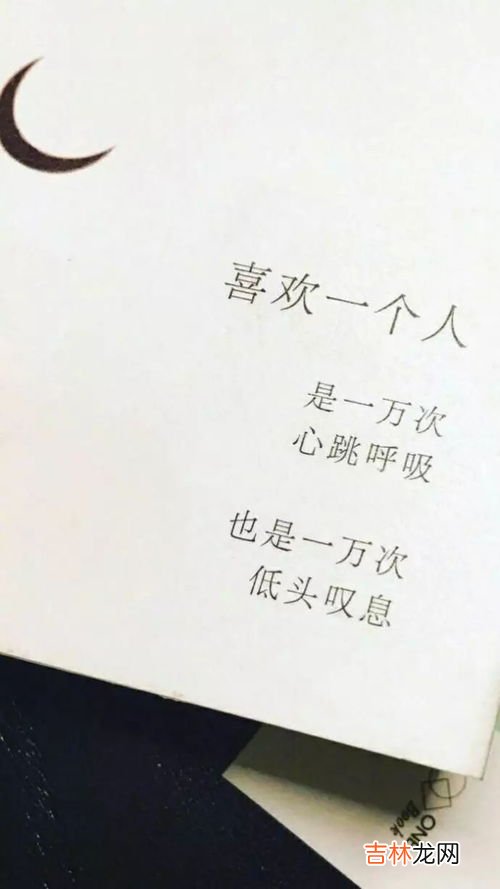 喜欢一个人
是一万次
心跳呼吸
也是一万次
低头叹息
ONE
Book
吉林龙网